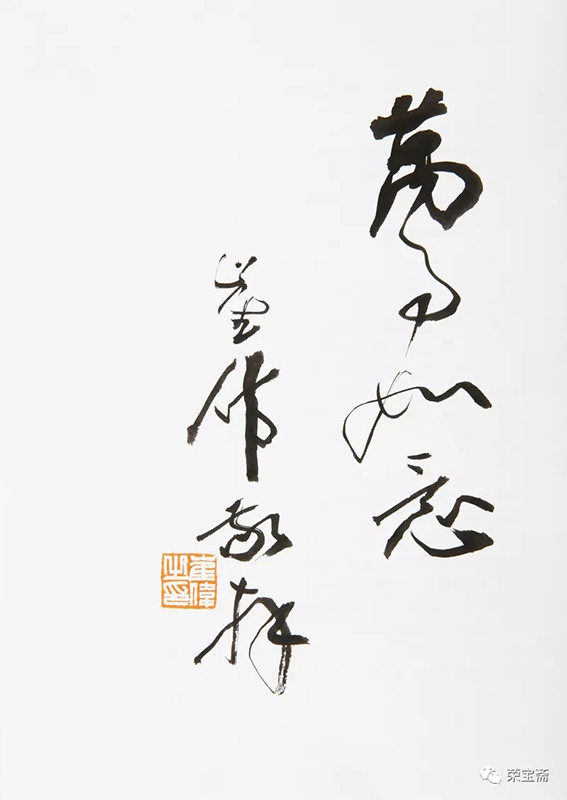 萬事如意
崔伟敬拜
崔偉之印
荣宝斋